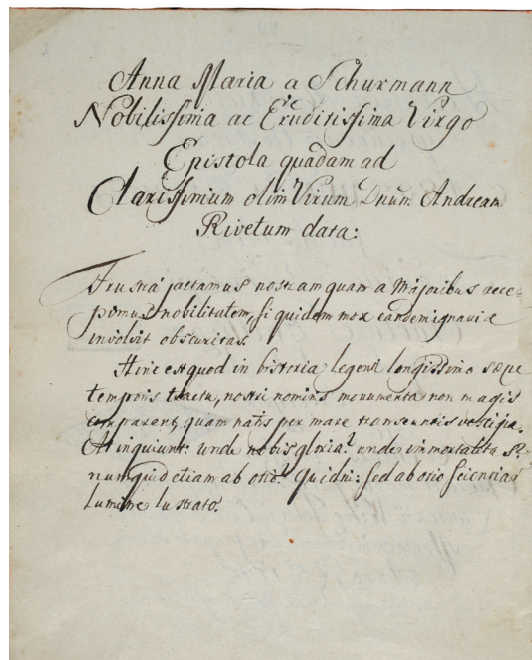 Anna Maria a Schurmann
Nobilissima ac Eruditissima Virgo
Epistola quadam ad
Clarissimium olim Virum Dnum Andream
Rivetum data:
Frustra jactamus nostram quam a Majoribus acce-
pimus nobilitatem, si quidem mox eandem ignaviæ
involvit obscuritas.
Hinc est quod in historia legenti longissimo sæpe
temporis tractu, nostri nominis monumenta non magis
compareant, quam navis per mare transeuntis vestigia.
At inquiunt: unde nobis gloria? unde immortalitas?
numquid etiam ab otio? Quidni: sed ab otio scientiæ
Lumine lustrato.